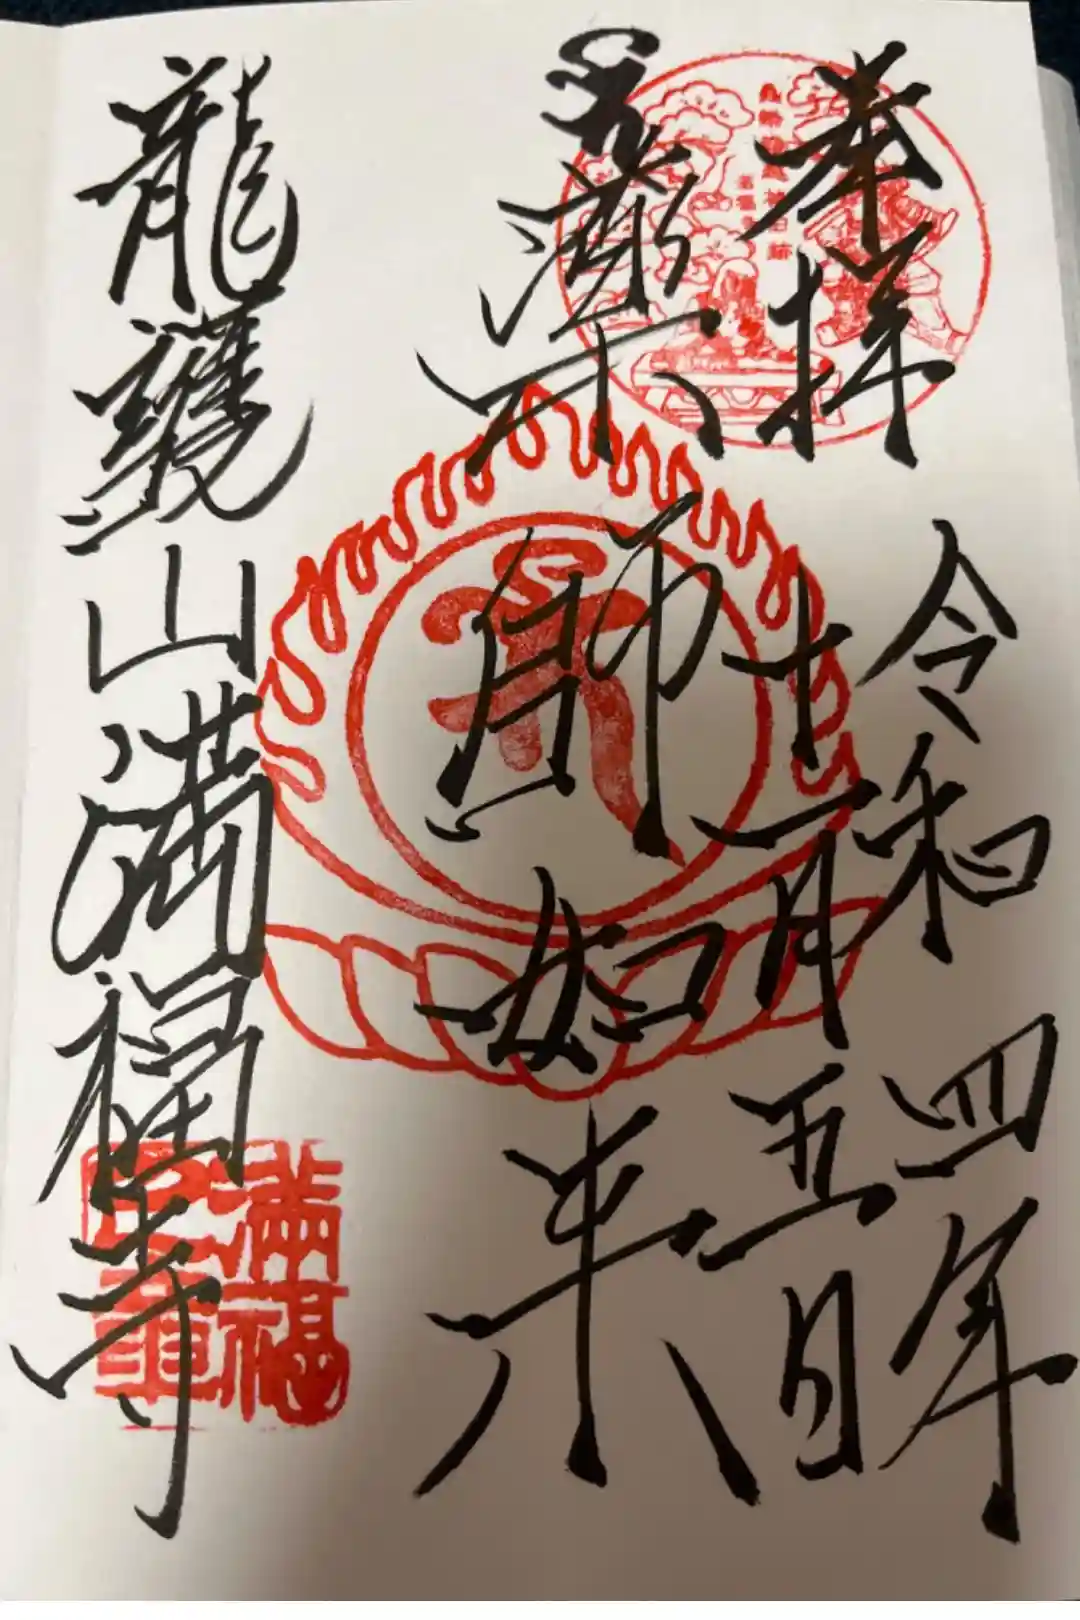 奉拝
令和四年
十一月五日
薬師如来
龍護山満福寺
満福